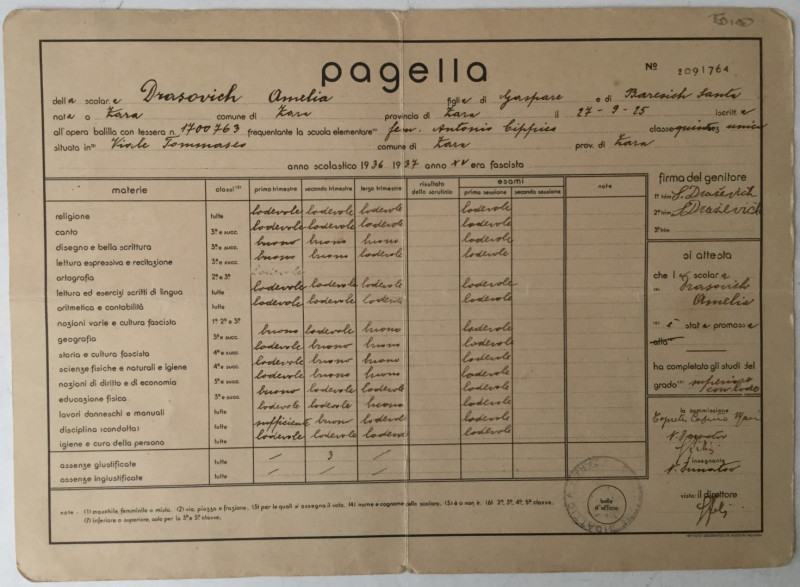 pagella
Nº 2091764
della scolara Drasovich Amelia figlia di Gaspare e di Baresich Santa
nata a Zara comune di Zara provincia di Zara il 27-9-25 iscritta
all'opera balilla con tessera n. 1700763 frequentante la scuola elementare (1) fem. Antonio Cippico classe quinta unica
situata in (2) Viale Tommaseo comune di Zara prov. di Zara
anno scolastico 1936 1937 anno XV era fascista
materie classi (3) primo trimestre secondo trimestre terzo trimestre risultato dello scrutinio esami prima sessione seconda sessione note
religione tutte lodevole lodevole lodevole lodevole
canto 3ª e succ. lodevole lodevole lodevole lodevole
disegno e bella scrittura tutte buono buono buono lodevole
lettura espressiva e recitazione 3ª e succ. buono buono lodevole lodevole
ortografia 2ª e 3ª
lettura ed esercizi scritti di lingua tutte lodevole lodevole lodevole lodevole
aritmetica e contabilità tutte lodevole lodevole lodevole lodevole
nozioni varie e cultura fascista 1ª 2ª e 3ª
geografia 3ª e succ. buono lodevole buono lodevole
storia e cultura fascista 4ª e succ. lodevole buono buono lodevole
scienze fisiche e naturali e igiene 4ª e succ. lodevole buono buono lodevole
nozioni di diritto e di economia 5ª e succ. lodevole buono buono lodevole
educazione fisica 3ª e succ. buono lodevole lodevole lodevole
lavori donneschi e manuali tutte lodevole lodevole buono lodevole
disciplina (condotta) tutte sufficiente buono lodevole lodevole
igiene e cura della persona tutte lodevole lodevole lodevole lodevole
assenze giustificate tutte / 3 /
assenze ingiustificate tutte / / /
note - (1) maschile, femminile o mista. (2) via, piazza e frazione. (3) per le quali si assegna il voto. (4) nome e cognome dello scolaro. (5) è o non è. (6) 2ª, 3ª, 4ª, 5ª classe.
(7) inferiore o superiore, solo per la 3ª e 5ª classe.
bollo d'ufficio
firma del genitore
1º trim. S. Draševich
2º trim. S. Draševich
3º trim.
si attesta
che l a scolara
(4) Drasovich
Amelia
(5) è stata promossa
alla
ha completato gli studi del
grado (7) superiore
con lode
la commissione
l'insegnante
visto: il direttore